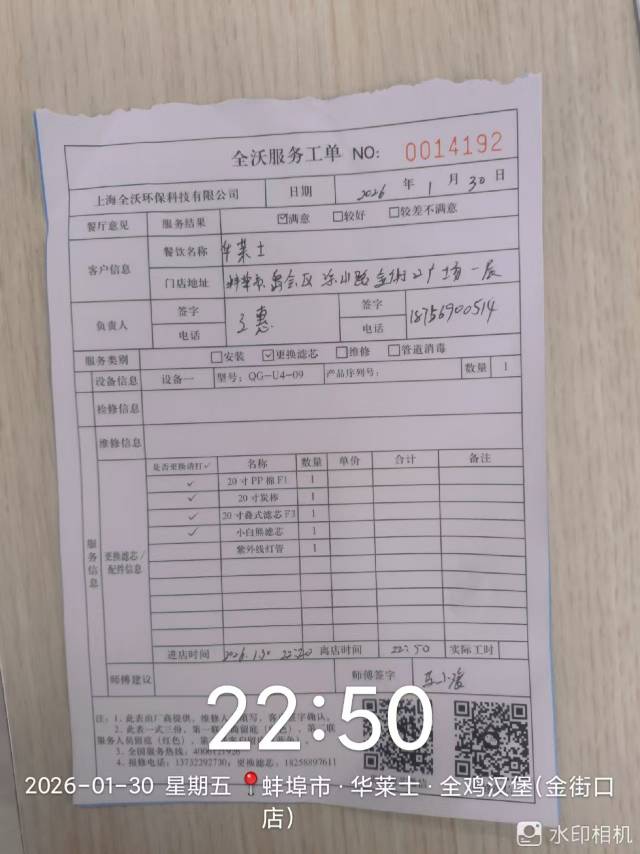 全沃服务工单 NO: 0014192
上海全沃环保科技有限公司 日期 2026 年 1 月 30 日
餐厅意见 服务结果 ☑满意 □较好 □较差不满意
客户信息 餐饮名称 华莱士
门店地址 蚌埠市禹会区涂山路金街广场一层
负责人 签字 王惠 签字
电话 电话 18756900514
服务类别 □安装 ☑更换滤芯 □维修 □管道消毒
设备信息 设备一 型号: QG-U4-09 产品序列号: 数量 1
检修信息
维修信息
服务信息
更换滤芯/配件信息
是否更换请打✓ 名称 数量 单价 合计 备注
✓ 20寸PP棉F1 1
✓ 20寸炭棒 1
✓ 20寸叠式滤芯F3 1
✓ 小白熊滤芯 1
紫外线灯管 1
进店时间 2026.1.30 22:20 离店时间 22:50 实际工时
师傅建议 师傅签字
注: 1. 此表由厂商提供, 维修人 填写, 客 签字确认。
2. 此表一式三份, 第一联 商留底
服务人员留底(红色),
3. 全国服务热线: 4006121926
4. 报修电话: 13732292730; 更换滤芯: 18258897611
22:50
2026-01-30 星期五 蚌埠市·华莱士·全鸡汉堡(金街口
店)
水印相机